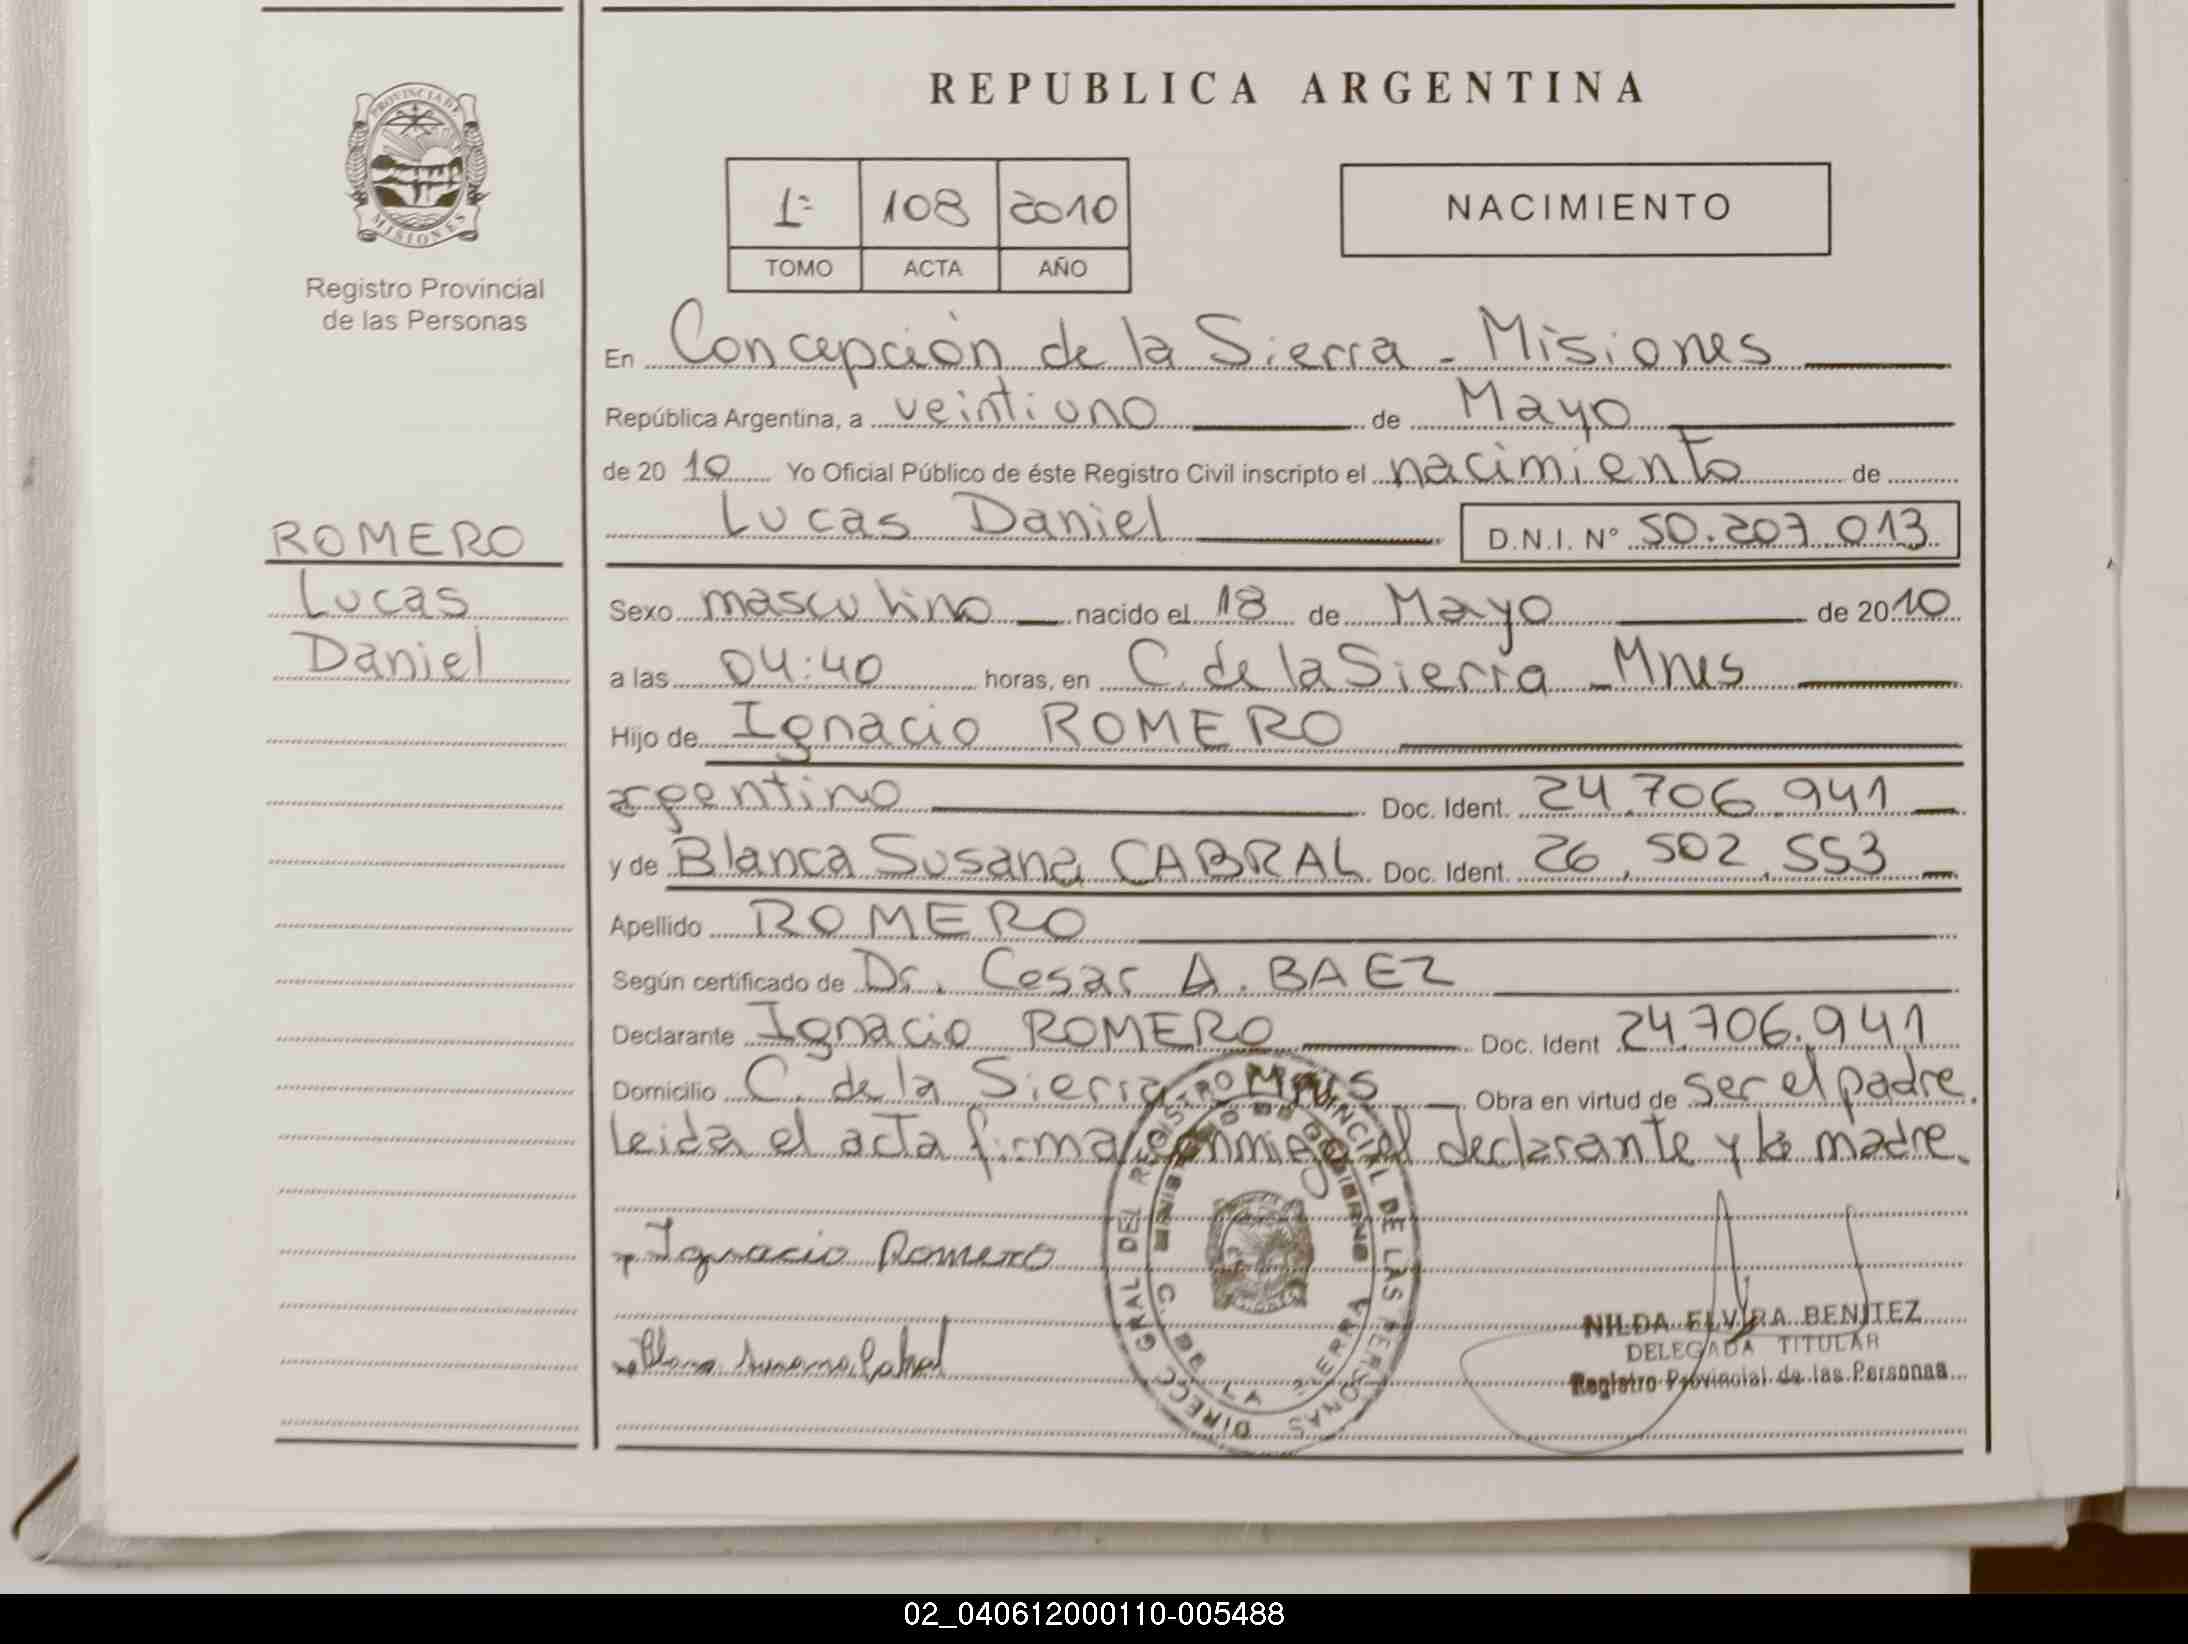 REPUBLICA ARGENTINA
PROVINCIA DE MISIONES
Registro Provincial
de las Personas
1º 108 2010
TOMO ACTA AÑO
NACIMIENTO
En Concepción de la Sierra - Misiones
República Argentina, a veintiuno de Mayo
de 20 10 Yo Oficial Público de éste Registro Civil inscripto el nacimiento de
Lucas Daniel D.N.I. Nº 50.207.013
ROMERO
Lucas
Daniel
Sexo masculino nacido el 18 de Mayo de 2010
a las 04:40 horas, en C. de la Sierra - Mnes
Hijo de Ignacio ROMERO
argentino Doc. Ident. 24.706.941
y de Blanca Susana CABRAL Doc. Ident. 26.502.553
Apellido ROMERO
Según certificado de Dr. Cesar A. BAEZ
Declarante Ignacio ROMERO Doc. Ident 24.706.941
Domicilio C. de la Sierra Mnes Obra en virtud de ser el padre.
Leida el acta firma conmigo el declarante y la madre.
Ignacio Romero
Blanca Susana Cabral
DIRECC GRAL DEL REGISTRO PROVINCIAL DE LAS PERSONAS
C. DE LA SIERRA
NILDA ELVIRA BENITEZ
DELEGADA TITULAR
Registro Provincial de las Personas
02_040612000110-005488